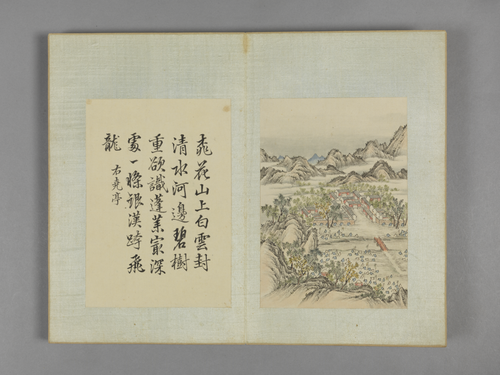 桃花山上白雲封
清水河邊碧樹
重欲識蓬萊最深
處一條銀漢跨飛
龍
右堯亭